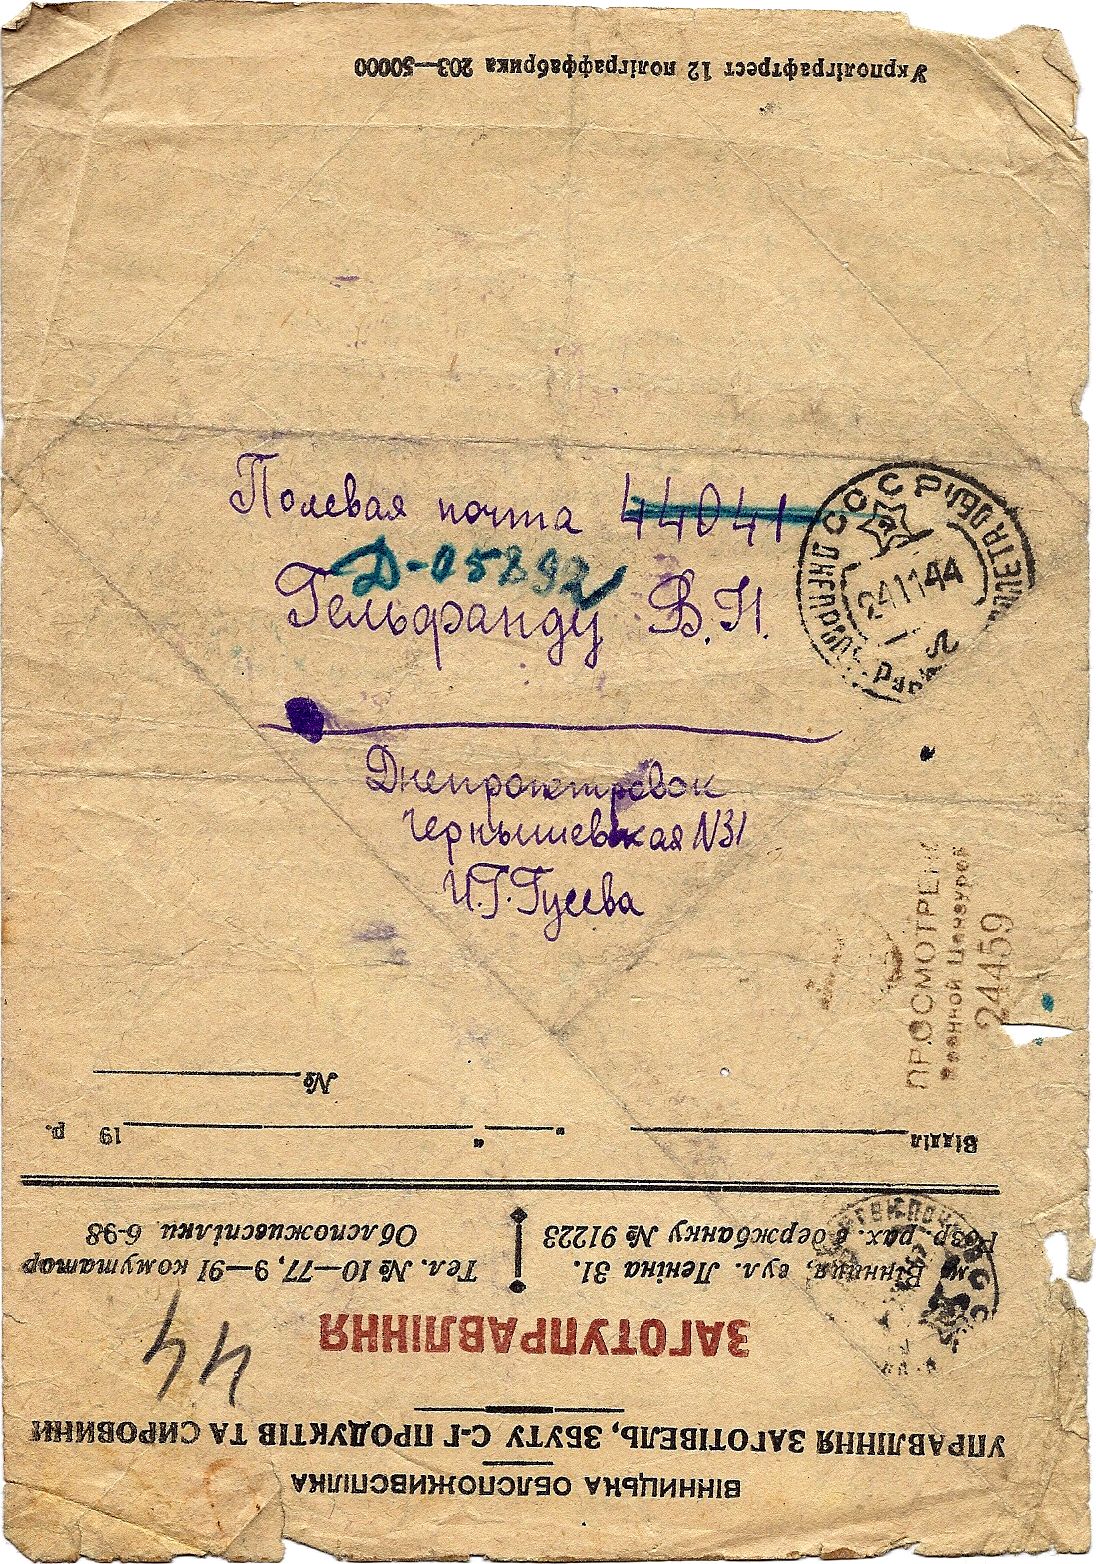 Укрполіграфтрест 12 поліграффабрика 203—50000
Полевая почта 44041
Д-05892
Гельфанду В.Н.
Днепропетровск
Чернышевская N31
И.Г. Гусева
СССР
24 11 44
ПРОСМОТРЕНО
Военной Цензурой
24459
ВІННИЦЬКА ОБЛСПОЖИВСПІЛКА
УПРАВЛІННЯ ЗАГОТІВЕЛЬ, ЗБУТУ С-Г ПРОДУКТІВ ТА СИРОВИНИ
44
ЗАГОТУПРАВЛІННЯ
м. Вінниця, вул. Леніна 31.
Розр.-рах. в держбанку № 91223
Тел. № 10—77, 9—91 комутатор
Облспоживспілки 6-98
Відділ
" " 19 р.
№